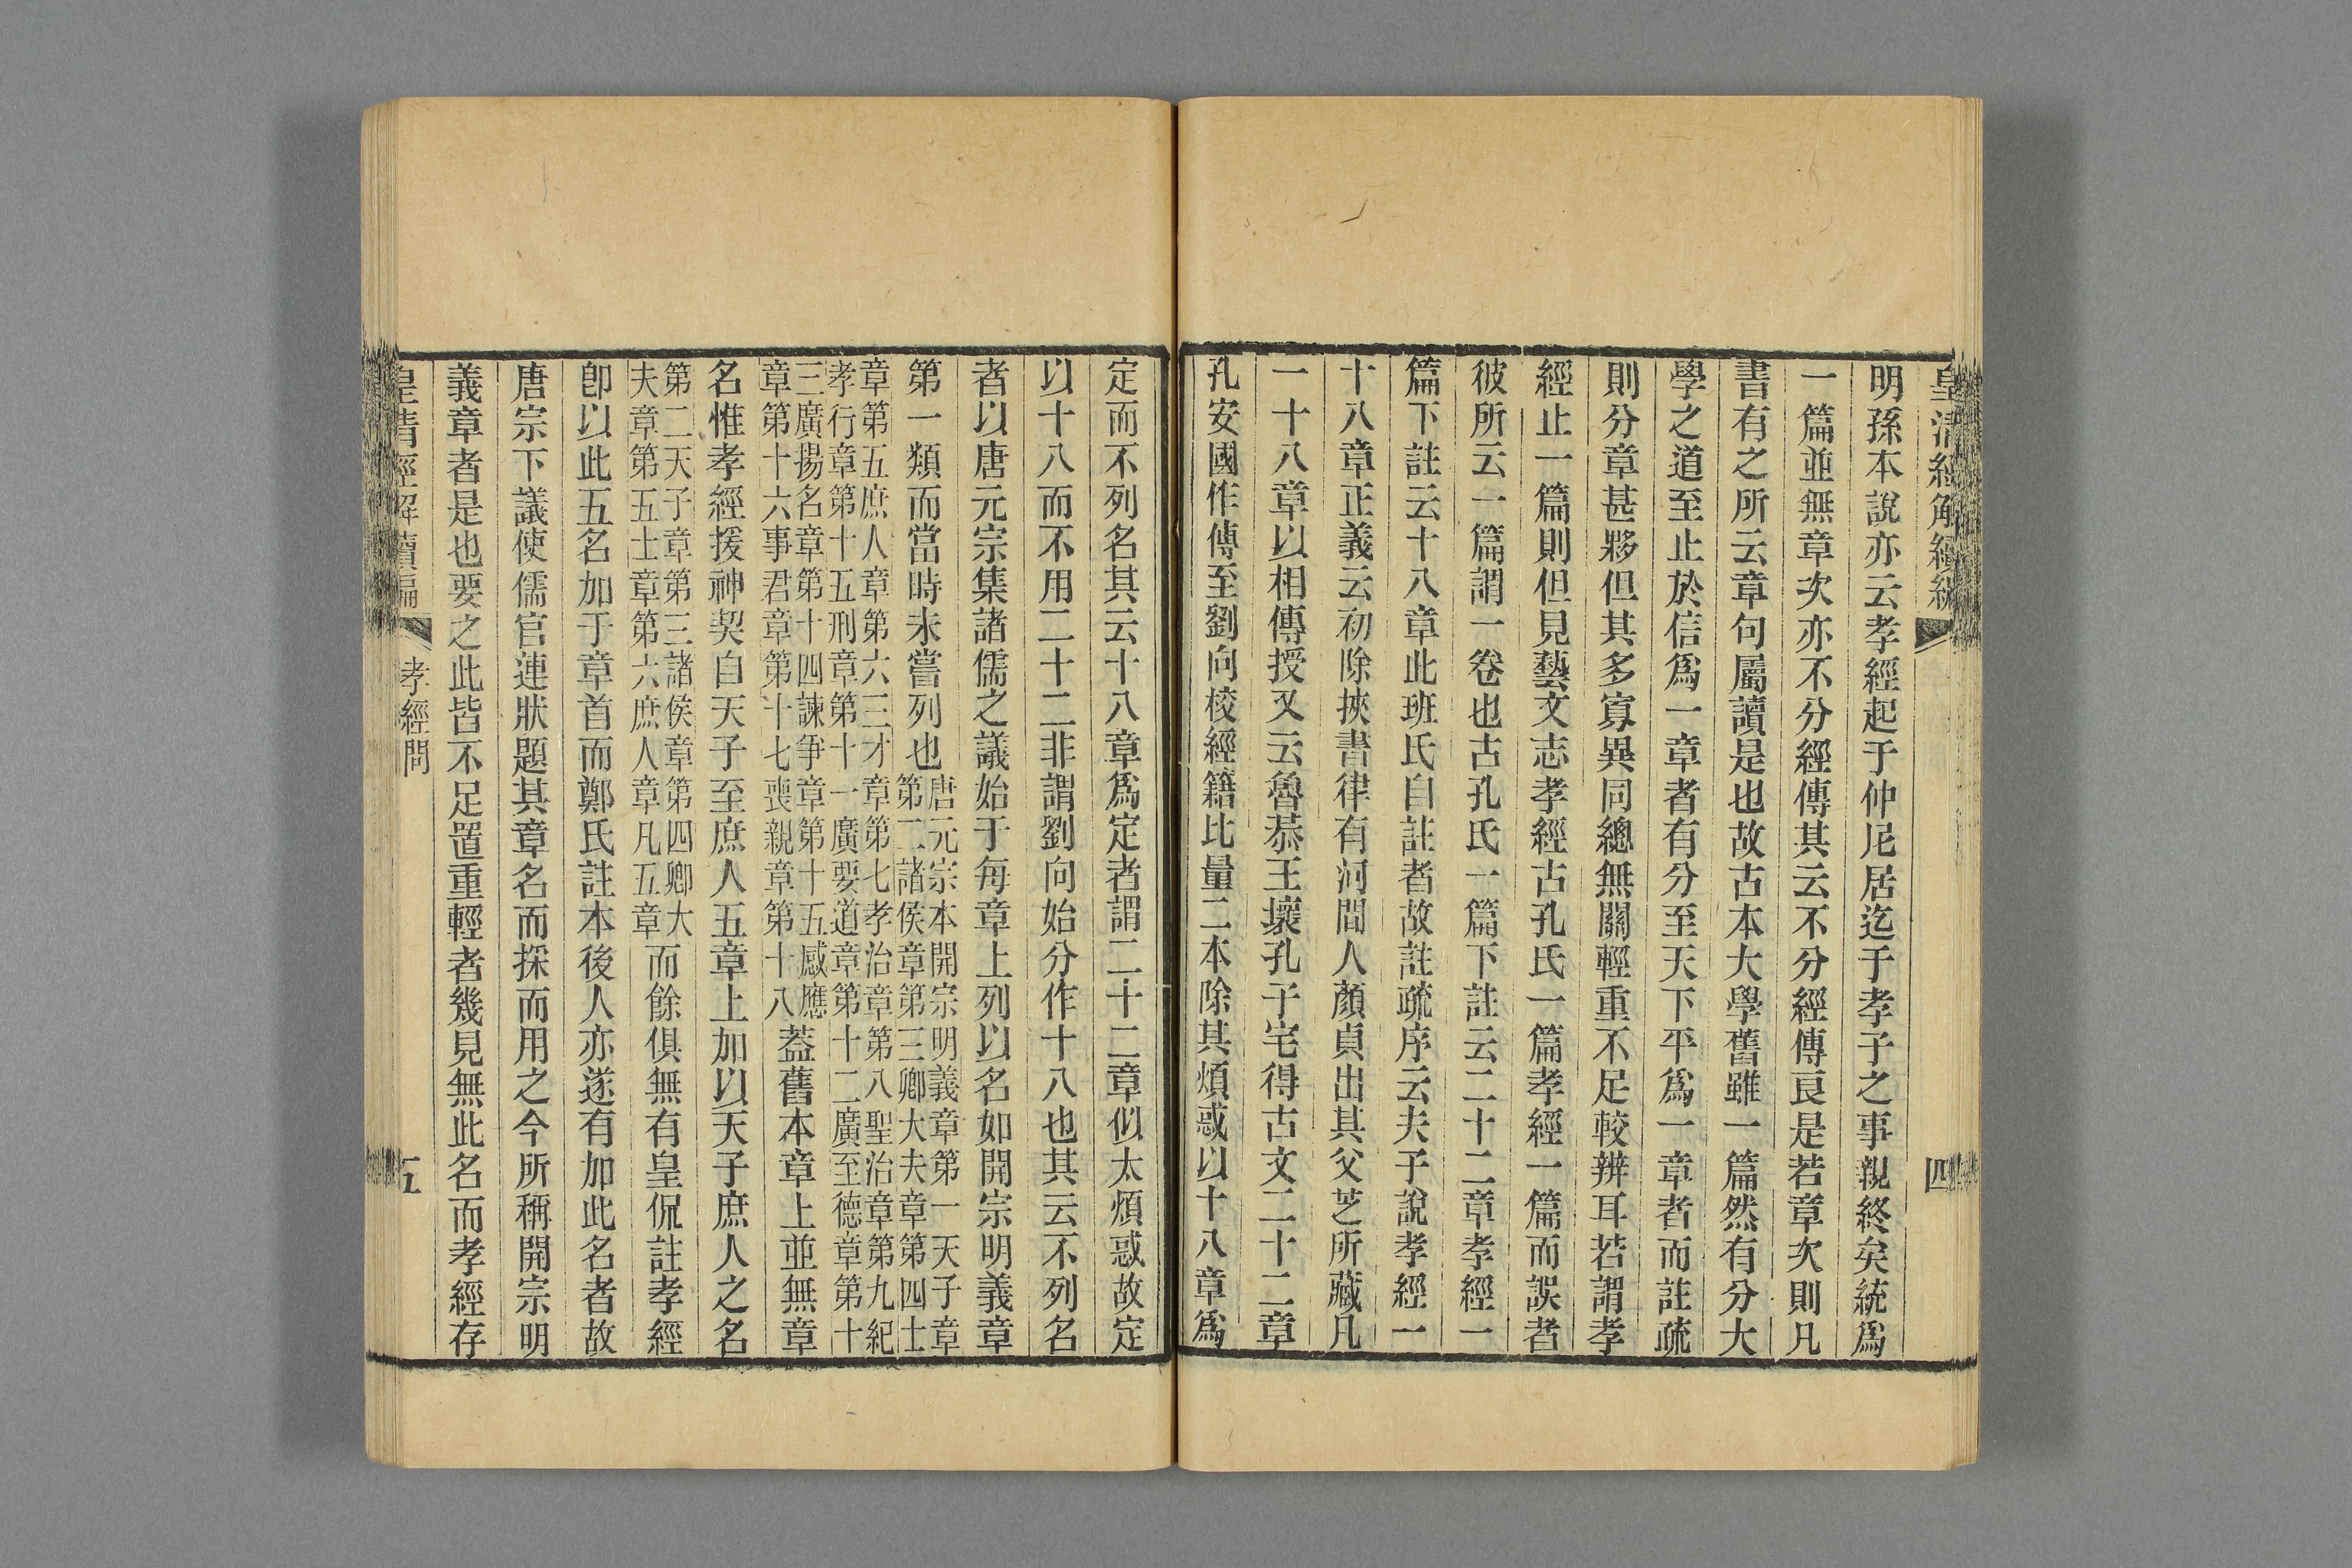 皇清經解續編
四
明孫本說亦云孝經起于仲尼居迄于孝子之事親終矣統爲
一篇並無章次亦不分經傳其云不分經傳良是若章次則凡
書有之所云章句屬讀是也故古本大學舊雖一篇然有分大
學之道至止於信爲一章者有分至天下平爲一章者而註疏
則分章甚夥但其多寡異同總無關輕重不足較辨耳若謂孝
經止一篇則但見藝文志孝經古孔氏一篇孝經一篇而誤者
彼所云一篇謂一卷也古孔氏一篇下註云二十二章孝經一
篇下註云十八章此班氏自註者故註疏序云夫子說孝經一
十八章正義云初除挾書律有河間人顏貞出其父芝所藏凡
一十八章以相傳授又云魯恭王壞孔子宅得古文二十二章
孔安國作傳至劉向校經籍比量二本除其煩惑以十八章爲
定而不列名其云十八章爲定者謂二十二章似太煩惑故定
以十八而不用二十二非謂劉向始分作十八也其云不列名
者以唐元宗集諸儒之議始于每章上列以名如開宗明義章
第一類而當時未嘗列也唐元宗本開宗明義章第一天子章
第二諸侯章第三卿大夫章第四士
章第五庶人章第六三才章第七孝治章第八聖治章第九紀
孝行章第十五刑章第十一廣要道章第十二廣至德章第十
三廣揚名章第十四諫爭章第十五感應
章第十六事君章第十七喪親章第十八蓋舊本章上並無章
名惟孝經援神契自天子至庶人五章上加以天子庶人之名
第二天子章第三諸侯章第四卿大
夫章第五士章第六庶人章凡五章而餘俱無有皇侃註孝經
卽以此五名加于章首而鄭氏註本後人亦遂有加此名者故
唐宗下議使儒官連狀題其章名而採而用之今所稱開宗明
義章者是也要之此皆不足置重輕者幾見無此名而孝經存
皇清經解續編
孝經問
五